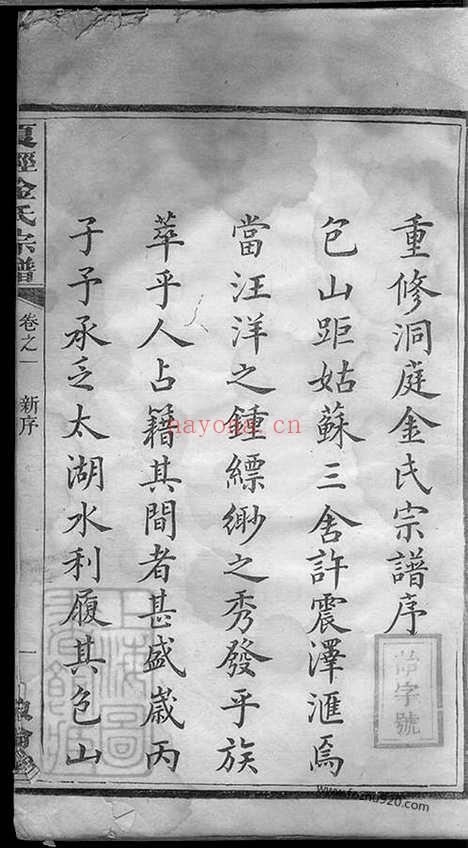 重修洞庭金氏宗譜序
包山距姑蘇三舍許震澤滙焉
當汪洋之鍾縹緲之秀發乎族
萃乎人占籍其間者甚盛歲丙
子予承乏太湖水利履其包山
金氏宗譜
卷之一
新序
一
字號
上海圖
hayona.cn
www.fozhu920.com